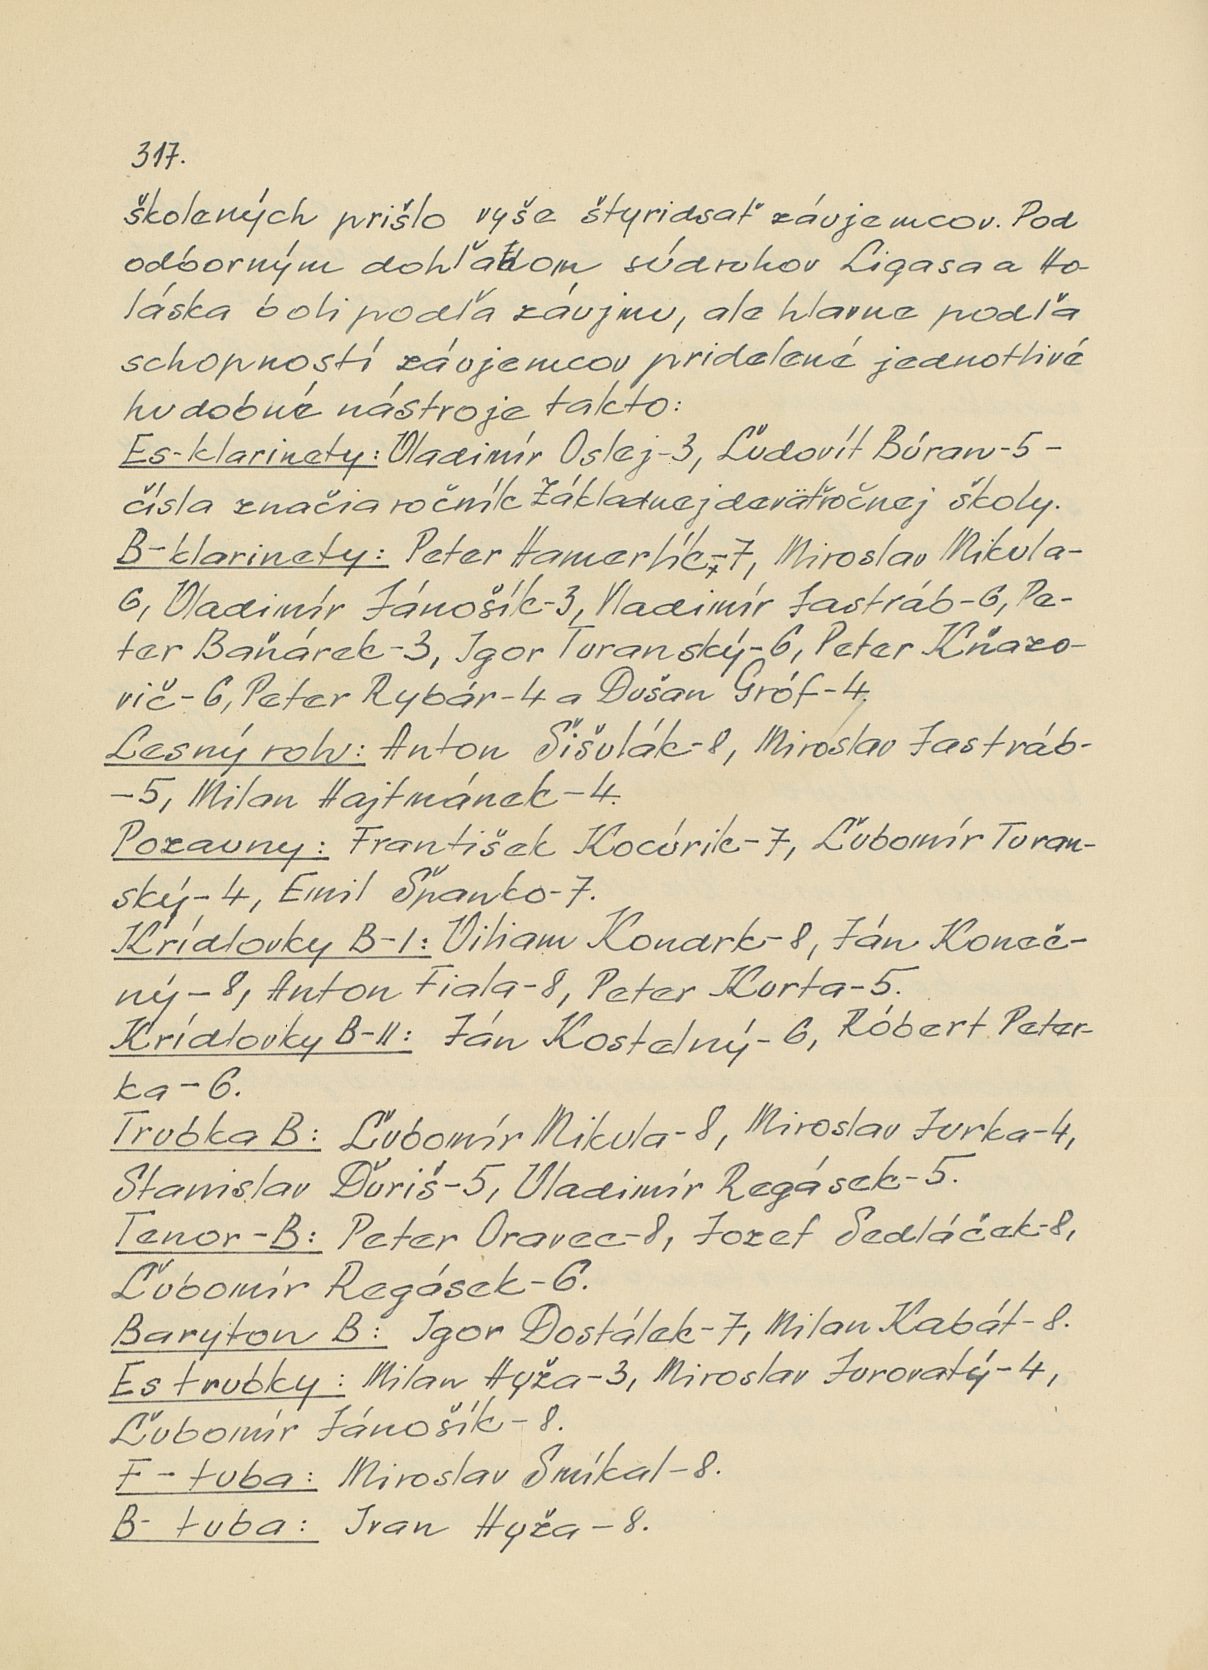 317.
školených prišlo vyše štyridsať záujemcov. Pod
odborným dohľadom súdruhov Ligasa a Ho-
láska boli podľa záujmu, ale hlavne podľa
schopností záujemcov pridelené jednotlivé
hudobné nástroje takto:
Es-klarinety: Vladimír Oslej-3, Ľudovít Búran-5-
čísla značia ročník Základnej deväťročnej školy.
B-klarinety: Peter Hamerlík-7, Miroslav Mikula-
6, Vladimír Jánošík-3, Vladimír Jastráb-6, Pe-
ter Baňárek-3, Igor Turanský-6, Peter Kňazo-
vič-6, Peter Rybár-4 a Dušan Gróf-4.
Lesný roh: Anton Šišulák-8, Miroslav Jastráb-
-5, Milan Hajtmánek-4.
Pozauny: František Kocúrik-7, Ľubomír Turan-
ský-4, Emil Španko-7.
Krídlovky B-I: Viliam Kondrk-8, Ján Koneč-
ný-8, Anton Fiala-8, Peter Kurta-5.
Krídlovky B-II: Ján Kostelný-6, Róbert Peter-
ka-6.
Trubka B: Ľubomír Mikula-8, Miroslav Jurka-4,
Stanislav Ďuriš-5, Vladimír Regásek-5.
Tenor-B: Peter Oravec-8, Jozef Sedláček-8,
Ľubomír Regásek-6.
Baryton B: Igor Dostálek-7, Milan Kabát-8.
Es trubky: Milan Hyža-3, Miroslav Jurovatý-4,
Ľubomír Jánošík-8.
F-tuba: Miroslav Smíkal-8.
B-tuba: Ivan Hyža-8.